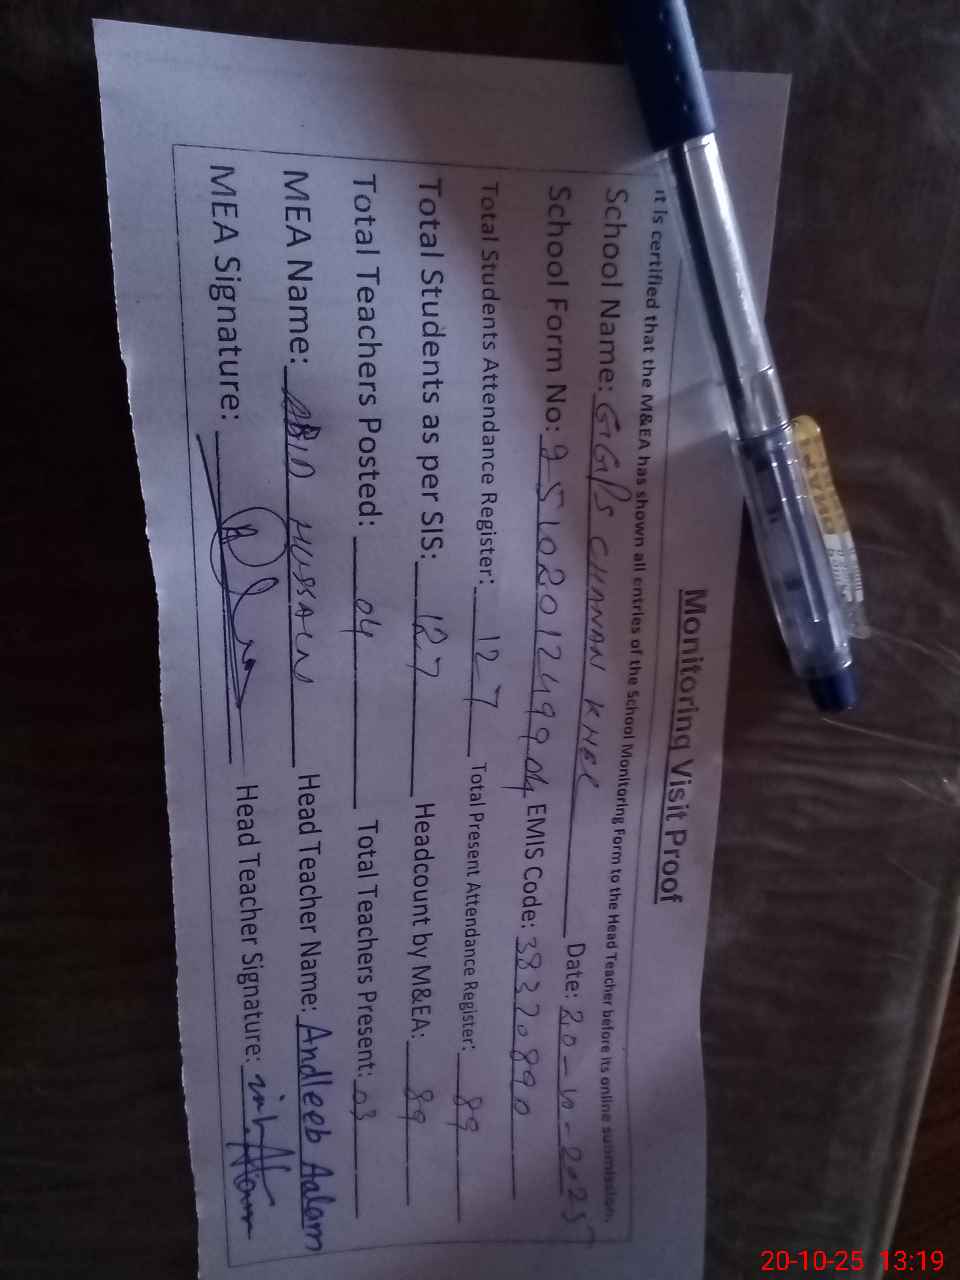 Monitoring Visit Proof
It is certified that the M&EA has shown all entries of the School Monitoring Form to the Head Teacher before its online submission.
School Name: GGPS CHANAN KHEL Date: 20-10-2025
School Form No: 9510201249904 EMIS Code: 38320890
Total Students Attendance Register: 127 Total Present Attendance Register: 89
Total Students as per SIS: 127 Headcount by M&EA: 89
Total Teachers Posted: 04 Total Teachers Present: 03
MEA Name: ABID HUSSAIN Head Teacher Name: Andleeb Aalam
MEA Signature: Head Teacher Signature:
20-10-25 13:19